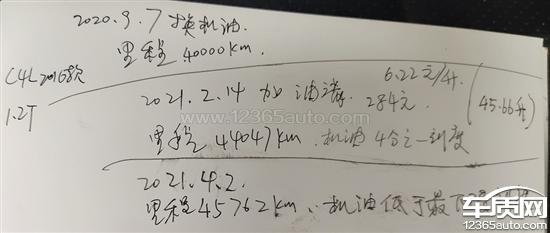 2020.9.7 换机油.
里程 40000km.
C4L 2016款
1.2T
6.22元/升.
2021.2.14 加油满. 284元. (45.66升)
www.12365auto.com
里程 44047km. 机油 4分之一刻度
2021.4.2.
里程 45762km. 机油低于最下
车质网
12365auto.com